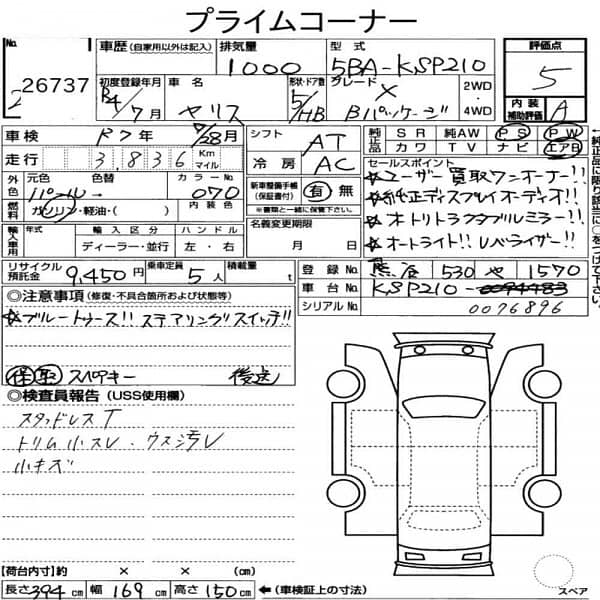 プライムコーナー
No. 26737
車歴 (自家用以外は記入) 排気量 1000 型式 5BA-KSP210
評価点 5
内装補助評価 A
初度登録年月 R4/7月 車名 ヤリス 形状・ドア数 5/HB グレード X Bパッケージ 2WD・4WD
車検 R7年 7/28月 シフト AT
純正品 SR 純AW PS PW
カワ TV ナビ エアB
走行 3,836 Km マイル 冷房 AC
外色 元色 パール 色替 カラーNo 070
新車整備手帳 (保証書付) 有 無
※書類と一緒に保管下さい。
燃料 ガソリン・軽油・( ) 内装色
セールスポイント
☆ユーザー買取ワンオーナー!!
☆純正ディスプレイオーディオ!!
☆オトリトラクタブルミラー!!
☆オートライト!! レベライザー!!
輸入車用 年式 輸入区分 ハンドル
ディーラー・並行 左・右
名義変更期限 月 日
リサイクル預託金 9,450円 乗車定員 5人 積載量 t
登録No. 530 や 1570
車台No. KSP210-
シリアルNo. 0076896
◎注意事項 (修復・不具合箇所および状態等)
☆ブルートゥース!! ステアリングスイッチ!!
保 取 スペアキー 後送
◎検査員報告 (USS使用欄)
スタッドレスT
トリム小スレ・ウス汚レ
小キズ
【荷台内寸】約 × × (cm)
長さ 394 cm 幅 169 cm 高さ 150 cm ←(車検証上の寸法)
スペア
←純正品に限り該当に○をつけて下さい